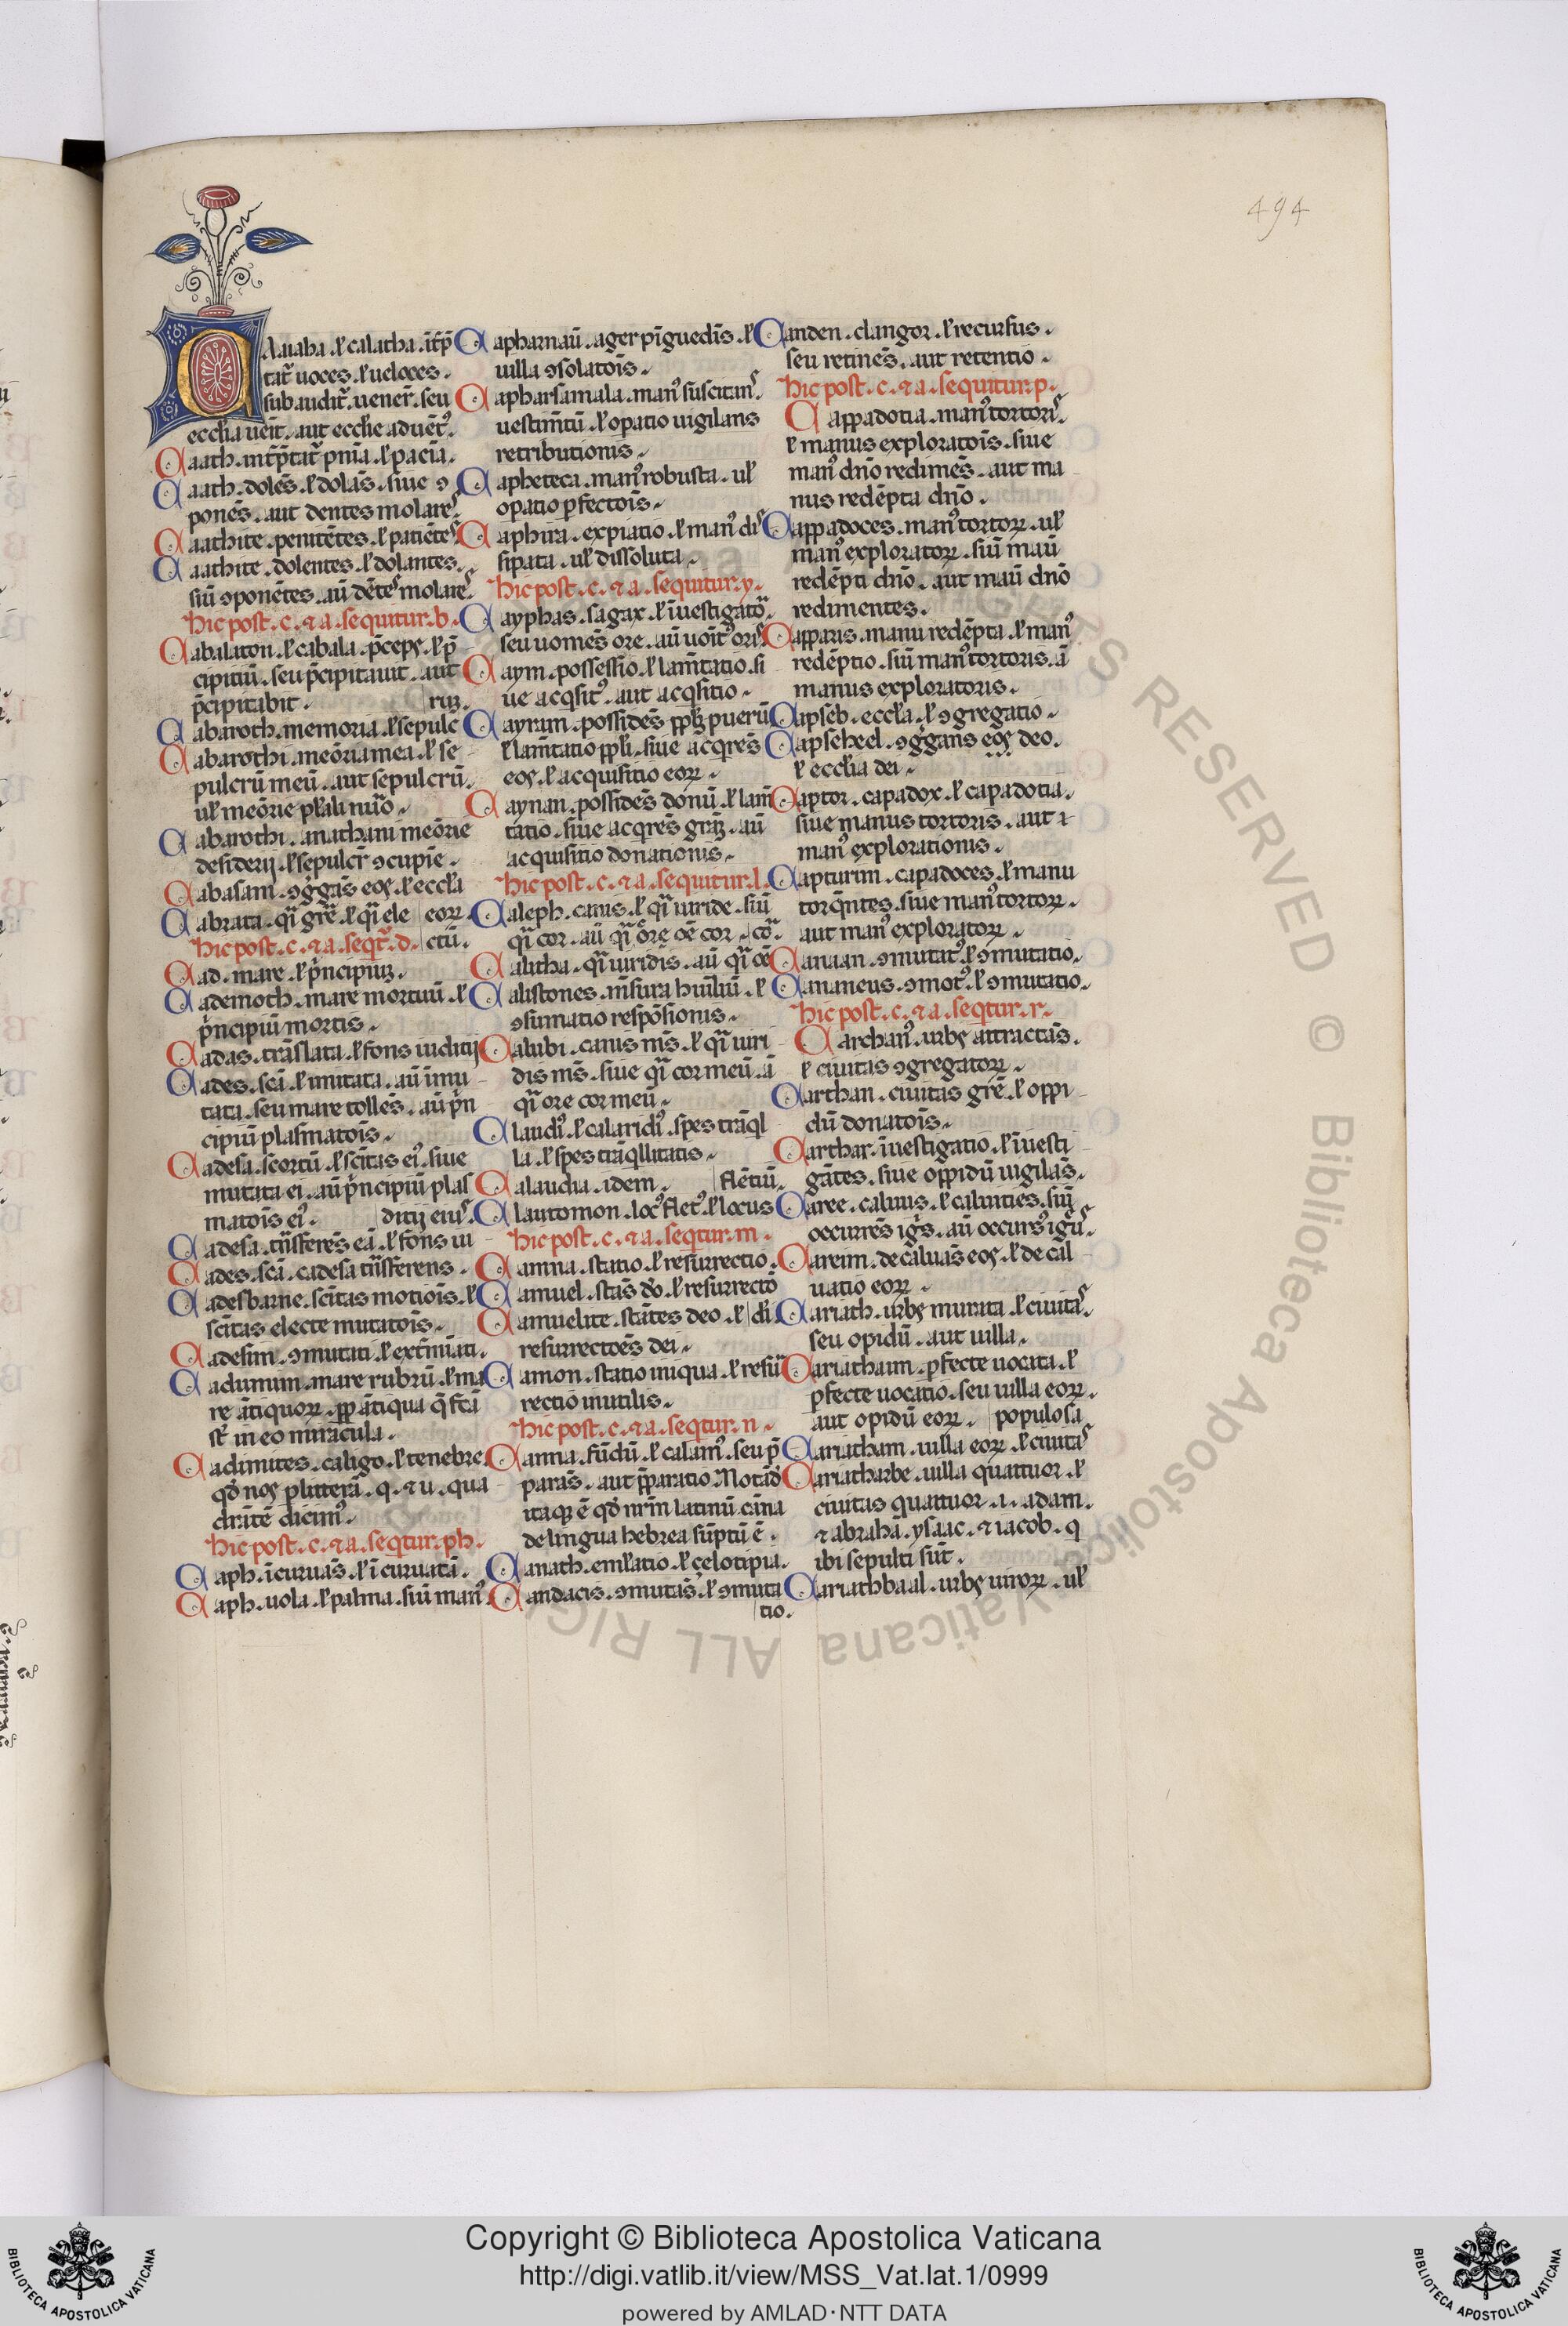 494
Aauaba .ł calatha . it͛p̄
tat᷑ uoces .ł ueloces .
subaudit᷑ . uener̄ . seu
ecclia uēit . aut ecclie aduēt᷒ .
Caath . int͛p̄tat᷑ pnīa .ł pacīa .
Caath . dolēs .ł dolās . siue ꝯ
ponēs . aut dentes molares
Caathite . penitētes .ł patiētes
Caathite . dolentes .ł dolantes .
siū ꝯponētes . aū dētes molares
hic post . c . ⁊ a . sequitur . b .
Cabalaton .ł cabala . p̄ceps .ł p̄
cipitiū . seu p̄cipitauit . aut
p̄cipitabit .
Cabaroth . memoria .ł sepulc
ruꝫ .
Cabarothi . meōria mea .ł se
pulcrū meū . aut sepulcrū .
uł meōrie płali nūo .
Cabarothi . anathani meōrie
desiderij .ł sepulcr̄ ꝯcupīe .
Cabasam . ꝯg̊gās eos .ł eccła
eoꝝ .
Cabrata . qͣi gr̄e .ł qͣi ele
ctū .
hic post . c . ⁊ a . seqt᷑ . d .
Cad . mare .ł pͥncipiuꝫ .
Cademoth . mare mortuū .ł
pͥncipiū mortis .
Cadas . trāslata .ł fons iuditij
Cades . scā .ł imitata . aū imu
tata . seu mare tollēs . aū pͥn
cipiū plasmatoīs .
Cadesa . scortū .ł scītas ei᷒ . siue
mutata ei . aū pͥncipiū plas
matoīs ei᷒ .
Cadesa . trāsferēs eā .ł fons iu
ditij eius .
Cades . scā . cadesa trāsferens .
Cadesbarne . scītas motiois .ł
scītas electe mutatoīs .
Cadesim . ꝯmutati .ł ext͛miati .
Cadumim . mare rubrū .ł ma
re ātiquoꝝ . ꝓp̄ ātiqua q̄ fcā
st̄ in eo miracula .
Cadimites . caligo .ł tenebre .
qđ nos p litterā . q . ⁊ u . qua
drāte dicim᷒ .
hic post . c . ⁊ a . seqtur . ph .
Caph . īcuruās .ł īcuruatā .
Caph . uola .ł palma . siū man᷒ .
Capharnaū . ager pīguedīs .ł
uilla ꝯsolatoīs .
Capharsamala . man᷒ suscitans
uestim̄tū .ł opatio uigilans
retributionis .
Capheteca . man᷒ robusta . uł
opatio ꝑfectoīs .
Caphira . expiatio .ł man᷒ dis
sipata . uł dissoluta .
hic post . c . ⁊ a . sequitur . y .
Cayphas . sagax .ł īuestigatōr .
seu uomēs ore . aū uoīt᷒ oris .
Caym . possessio .ł lam̄tatio . si
ue acqsit᷒ . aut acqsitio .
Cayram . possidēs ppłm puerū
ł lam̄tatio ppłi . siue acqrēs
eos .ł acquisitio eoꝝ .
Caynan . possidēs donū .ł lam̄
tatio . siue acqrēs grāꝫ . aū
acquisitio donationis .
hic post . c . ⁊ a . sequitur . l .
Caleph . canis .ł qͣi uiride . siū
qͣi cor . aū qͣi ōre ōe cor .
Calitha . qͣi uiridis . aū qͣi ōe
cor .
Calistones . m̄sura humilium .ł
ꝯsumatio respōsionis .
Calubi . canis m̄s .ł qͣi uiri
dis m̄s . siue qͣi cor meū . a
qͣi ore cor meū .
Claudi᷒ .ł calaridi᷒ . spes trāql
la .ł spes trāqllitatis .
Calaudia . idem .
Clautomon . loc᷒ flet᷒ .ł locus
flētiū .
hic post . c . ⁊ a . seqtur . m .
Camna . statio .ł resurrectio .
Camuel . stās do .ł resurrectō
di .
Camuelite . stātes deo .ł
resurrectoēs dei .
Camon . statio iniqua .ł resur
rectio inutilis .
hic post . c . ⁊ a . seqtur . n .
Canna . fūdū .ł calam᷒ . seu p̄
parās . aut p̄paratio . Notādō
itaqꝫ ē qđ nrm̄ latinū cāna
de lingua hebrea sūptū ē .
Canath . emlatio .ł çelotipia .
Candacis . ꝯmutās .ł ꝯmuta
tio .
Canden . clangor .ł recursus .
seu retinēs . aut retentio .
hic post . c . ⁊ a . sequitur . p .
Cappadotia . man᷒ tortoris .
ł manus exploratoīs . siue
man᷒ dn̄o redimēs . aut ma
nus redēpta dn̄o .
Cappadoces . man᷒ tortoꝝ . uł
man᷒ exploratoꝝ . siū maū
redēpti dn̄o . aut maū dn̄o
redimentes .
Capparis . manu redēpta .ł man᷒
redēptio . siū man᷒ tortoris . a
manus exploratoris .
Capseb . eccła .ł ꝯgregatio .
Capseheel . ꝯg̊gans eos deo .
ł ecclia dei .
Captor . capadox .ł capadotia .
siue manus tortoris . aut ⁊
man᷒ explorationis .
Capturim . capadoces .ł manu
torq̄ntes . siue man᷒ tortoꝝ .
aut man᷒ exploratoꝝ .
Canaan . ꝯmutat᷒ .ł ꝯmutatio .
Cananeus . ꝯmot᷒ .ł ꝯmutatio .
hic post . c . ⁊ a . seqtur . r .
Carchan᷒ . urbs attractās .
ł ciuitas ꝯgregatoꝝ .
Carthan . ciuitas gr̄e .ł oppi
dū donatoīs .
Carthar . īuestigatio .ł īuesti
gātes . siue oppidū uigilās .
Caree . caluus .ł caluities . siū
occurrēs igīs . aū occurs᷒ ignis .
Careim . decaluās eos .ł decal
uatio eoꝝ .
Cariath . urbs murata .ł ciuitas .
seu opidū . aut uilla .
Cariathaim . ꝑfecte uocata .ł
ꝑfecte uocatio . seu uilla eoꝝ .
aut opidū eoꝝ .
Cariatham . uilla eoꝝ .ł ciuitas
populosa .
Cariatharbe . uilla quattuor .ł
ciuitas quattuor . i . adam .
⁊ abrahā . ysaac . ⁊ iacob . q
ibi sepulti sūt .
Cariathbaal . urbs uiroꝝ . uł
ALL RIGHTS RESERVED © Biblioteca Apostolica Vaticana
Copyright © Biblioteca Apostolica Vaticana
http://digi.vatlib.it/view/MSS_Vat.lat.1/0999
powered by AMLAD·NTT DATA
BIBLIOTECA APOSTOLICA VATICANA
BIBLIOTECA APOSTOLICA VATICANA